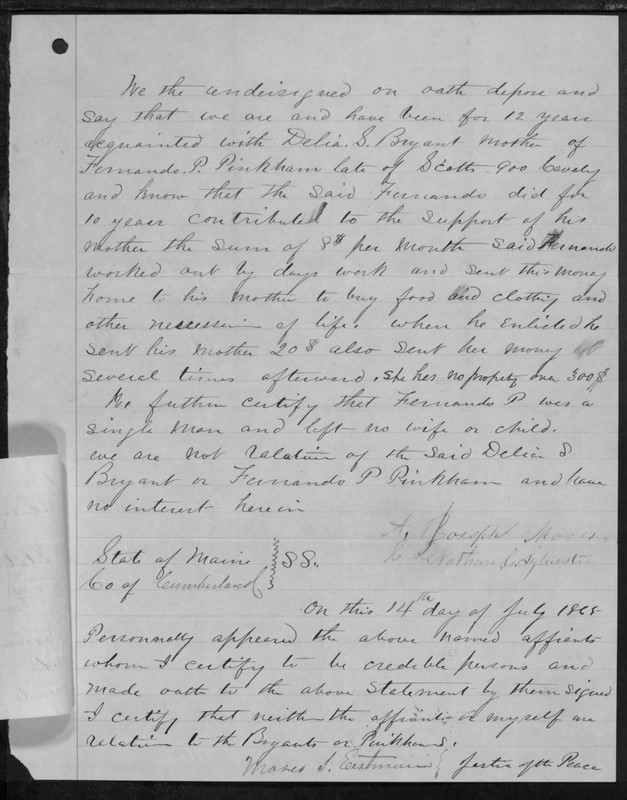 We the undersigned on oath depose and
say that we are and have been for 12 years
acquainted with Delia. S. Bryant mother of
Fernando. P. Pinkham late of Scotts 900 Cavely
and know that the said Fernando did for
10 years contributed to the support of his
mother the sum of 8$ per month said Fernando
worked out by days work and sent this money
home to his mother to buy food and clothing and
other necessaries of life. when he Enlisted he
sent his mother 20$ also sent her money at
several times afterward, she has no property over 300$
We further certify that Fernando P was a
single man and left no wife or child.
we are not relation of the said Delia S
Bryant or Fernando P Pinkham and have
no interest herein
Joseph Moses
Nathan Sylvester
State of Maine } SS.
Co of Cumberland
On this 14th day of July 1868
Personally appeared the above named affients
whom I certify to be credible persons and
made oath to the above statement by them signed
I certify that neither the affiants or myself are
relation to the Bryants or Pinkhams.
Moses Eastman } Justice of the Peace